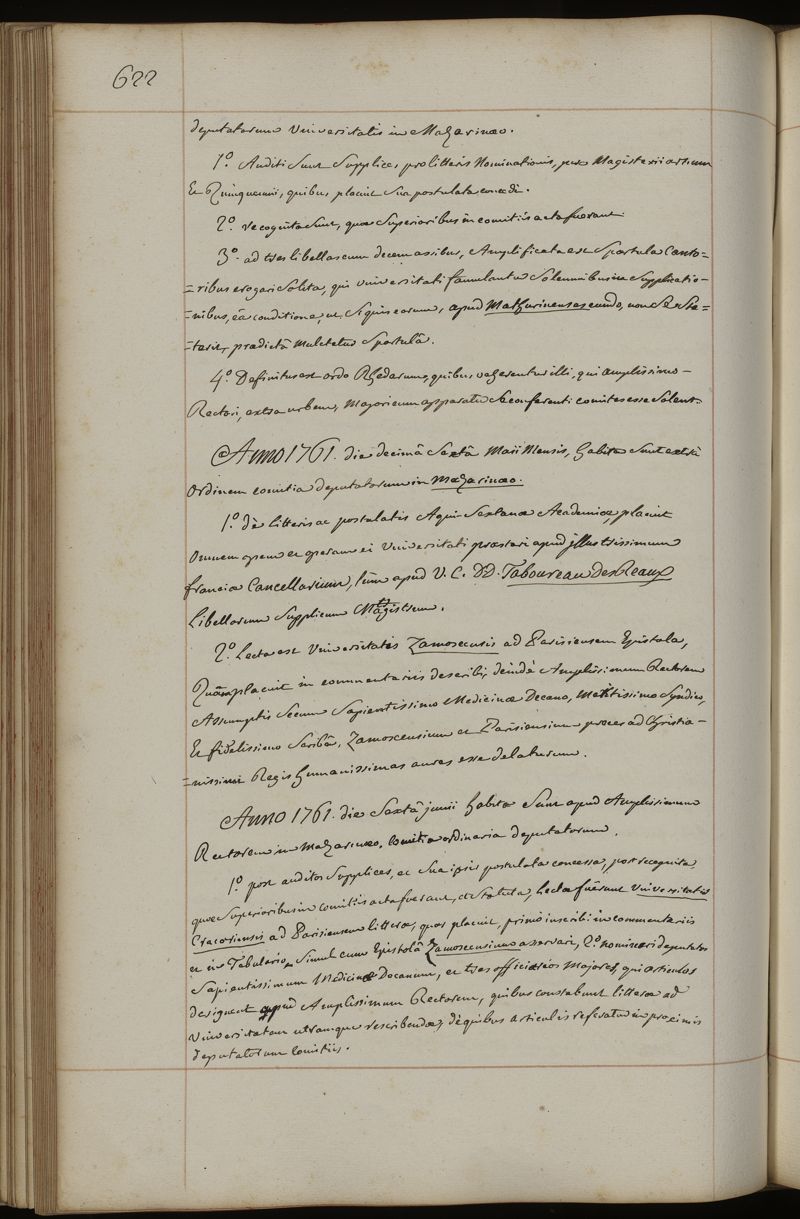 622
deputatorum Universitatis in Mazarinæo.
1º. Auditi sunt Supplices, pro litteris Nominationis, pro Magisterii artium
Et Quinquennii, quibus placuit sua postulata concedi.
2º. recognita sunt, quæ Superioribus in comitiis acta fuerant.
3º. ad tres libellas cum decem assibus, Amplificata est Sportula Canto=
=ribus erogari Solita, qui universitati famulantur Solemnibus in Supplicatio-
=nibus, eâ conditione, ut, Si quis eorum, apud Mathurinenses eundo, non Se Ste=
=terit, prædictâ mulctetur Sportulâ.
4º. Definitus est ordo Rhedarum, quibus veherentur illi, qui amplissimo-
Rectori, extra urbem, Majorem apparatu Se conferenti comites esse Solent.
Anno 1761. die decimâ Sextâ Maii Mensis, habita Sunt extrà
Ordinem comitia deputatorum in Mazarinæo.
1º. de litteris ac postulatis Aqui-Sextanæ Academiæ, placuit
Omnem opem et operam ei Universitati præstari apud illustrissimum
franciæ Cancellarium, tùm apud V. C. DD. Taboureau Des Reaux
Libellorum Supplicum Magistrum.
2º. Lecta est Universitatis Zamoscensis ad Parisiensem Epistola,
Quam placuit in commentariis describi, deindè Amplissimum Rectorem
Assumptis Secum Sapientissimo Medicinæ Decano, Meritissimo Syndico,
Et fidelissimo Scribâ, Zamoscensium et Parisiensium preces ad Christia-
=nissimi Regis humanissimas aures esse delaturum.
Anno 1761. die Sextâ junii habita Sunt apud Amplissimum
Rectorem in Mazarinæo, Comitia ordinaria deputatorum.
1º. post auditos Supplices, et Sua ipsis postulata concessa, post recognita,
quæ Superioribus in comitiis acta fuerant, et Statuta, lectæ fuerunt Universitatis
Cracoviensis ad Parisiensem litteræ, quas placuit, primò inscribi in commentariis
et in Tabulario, Simul cum Epistolâ Zamoscensium asservari, 2º. nominari deputatos
Sapientissimum Medicinæ Decanum, et tres officiarios Majores, qui articulos
designent apud Amplissimum Rectorem, quibus constabunt litteræ ad
Universitatem utramque rescribendæ, de quibus articulis referatur in proximis
deputatorum Comitiis.